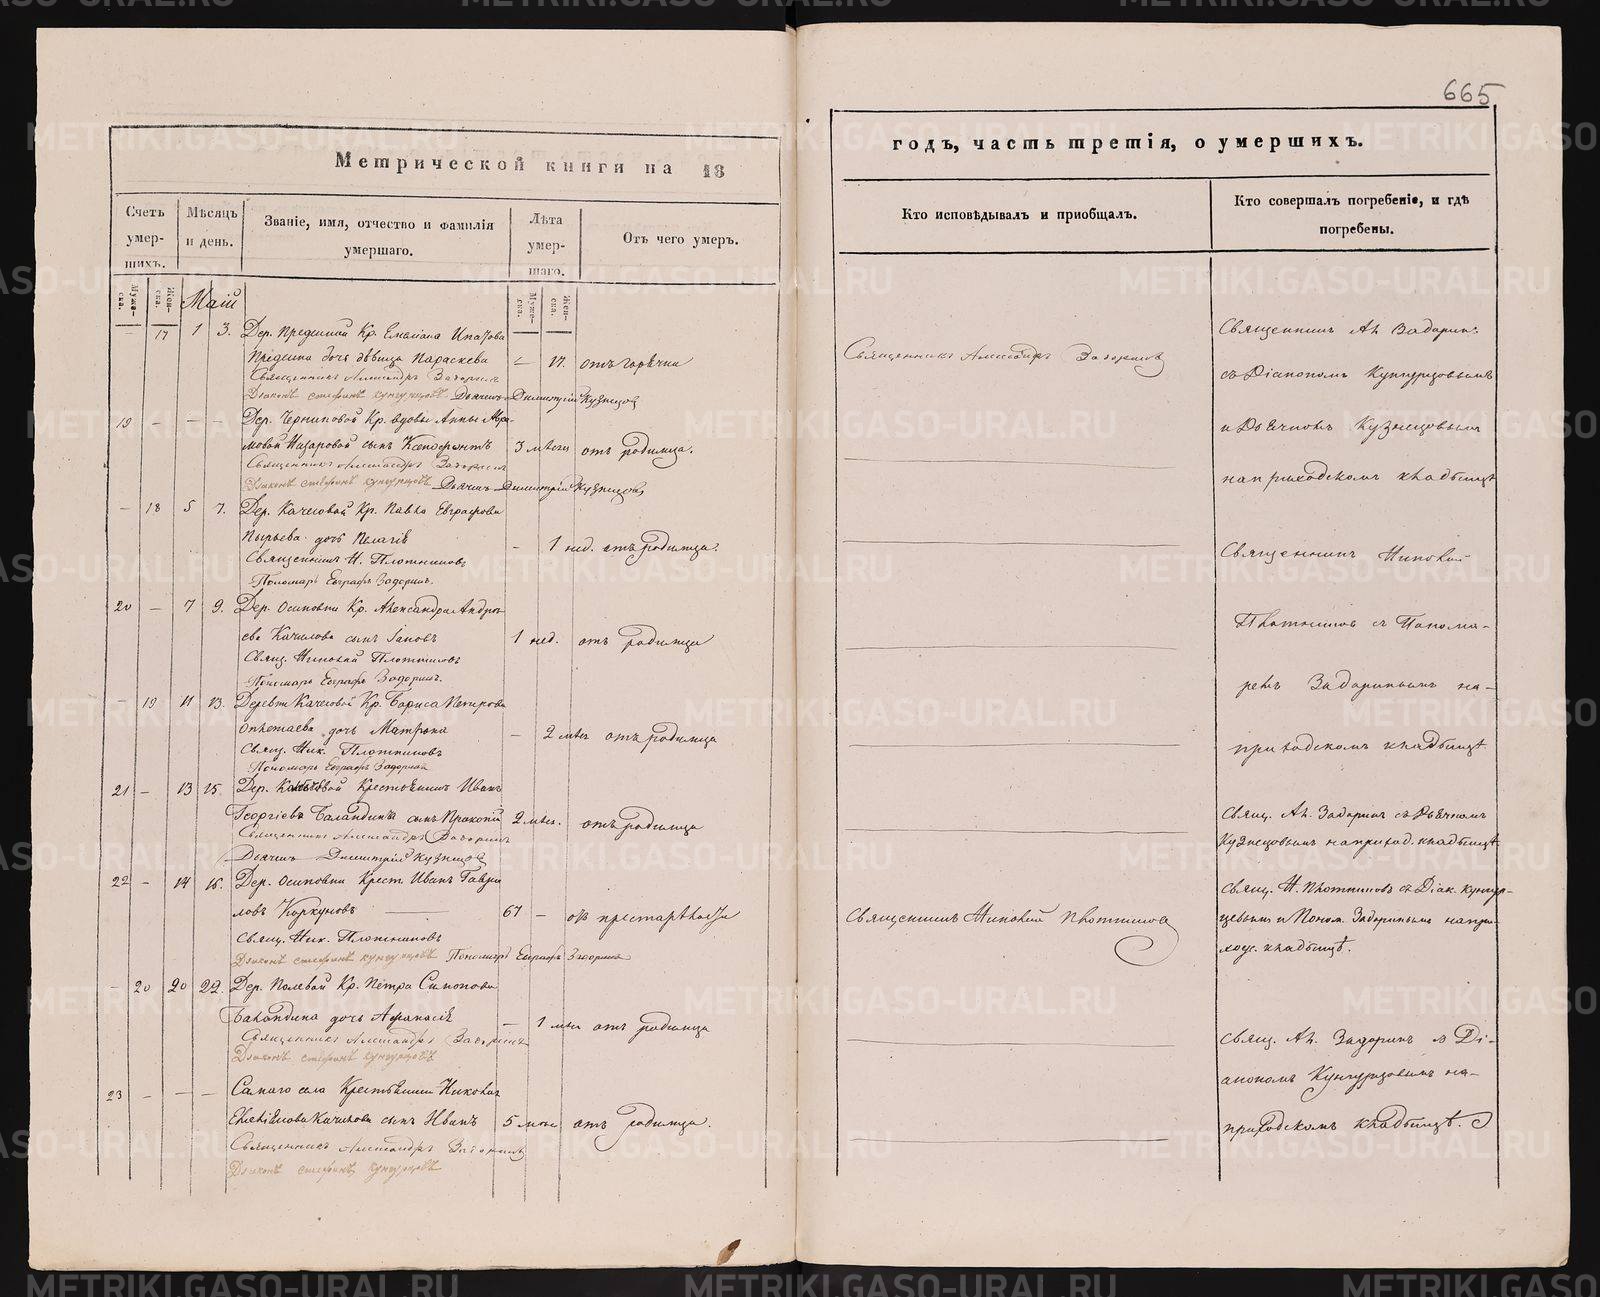 665
Метрической книги на 18
годъ, часть третія, о умершихъ.
Счетъ умер-шихъ.
Мѣсяцъ и день.
Званіе, имя, отчество и фамилія умершаго.
Лѣта умер-шаго.
Отъ чего умеръ.
Кто исповѣдывалъ и приобщалъ.
Кто совершалъ погребеніе, и гдѣ погребены.
Муже-ска.
Жен-ска.
Маій
Муже-ска.
Жен-ска.
17 1 3. Дер. Кр. Емеліана Ипатова
дочь дѣвица Параскева — 17. отъ горячки
Священникъ Александръ Задоринъ
Діаконъ Стефанъ Кунгурцовъ Дьячекъ Димитрій Кузнецовъ
19 — — — Дер. Кр. вдовы Анны
Назаровой сынъ Ксенофонтъ 3 мѣсец отъ родимца.
Священникъ Александръ Задоринъ
Діаконъ Стефанъ Кунгурцовъ Дьячекъ Димитрій Кузнецовъ
— 18 5 7. Дер. Качесовой Кр. Павла Евграфова
Пырьева дочь Пелагія — 1 нед. отъ родимца.
Священникъ Н. Плотниковъ
Пономарь Евграфъ Задоринъ.
20 — 7 9. Дер. Осиновки Кр. Александра Андре-
ева Качилова сынъ Іаковъ 1 нед. отъ родимца
Свящ. Николай Плотниковъ
Пономарь Евграфъ Задоринъ.
— 19 11 13. Деревни Качесовой Кр. Бориса Петрова
дочь Матрона — 2 мѣс отъ родимца
Свящ. Ник. Плотниковъ
Пономарь Евграфъ Задоринъ
21 — 13 15. Дер. Крестьянинъ Иванъ
Георгіевъ Баландинъ сынъ Прокопій 2 мѣс. отъ родимца
Священникъ Александръ Задоринъ
Дьячекъ Димитрій Кузнецовъ
22 — 14 16. Дер. Осиновки Крест. Иванъ Гаври-
ловъ Коркуновъ 67 — отъ престарѣлости
Свящ. Ник. Плотниковъ
Діаконъ Стефанъ Кунгурцовъ Пономарь Евграфъ Задоринъ
— 20 20 22. Дер. Полевой Кр. Петра Симонова
Баландина дочь Афанасія — 1 мѣс отъ родимца
Священникъ Александръ Задоринъ
Діаконъ Стефанъ Кунгурцовъ
23 — — — Самаго села Крестьянина Николая
Качилова сынъ Иванъ 5 мѣс отъ родимца.
Священникъ Александръ Задоринъ
Діаконъ Стефанъ Кунгурцовъ
Священникъ Александръ Задоринъ
Священникъ Николай Плотниковъ
Священникъ Ал. Задоринъ
съ Діакономъ Кунгурцовымъ
и Дьячкомъ Кузнецовымъ
на приходскомъ кладбищѣ
Священникъ Николай
Плотниковъ съ Понома-
ремъ Задоринымъ на
приходскомъ кладбищѣ
Свящ. Ал. Задоринъ съ Дьячкомъ
Кузнецовымъ на приход. кладбищѣ
Свящ. Н. Плотниковъ съ Діак. Кунгур-
цевымъ и Поном. Задоринымъ на при-
ходс. кладбищѣ.
Свящ. Ал. Задоринъ съ Ді-
акономъ Кунгурцовымъ на
приходскомъ кладбищѣ.
METRIKI.GASO-URAL.RU